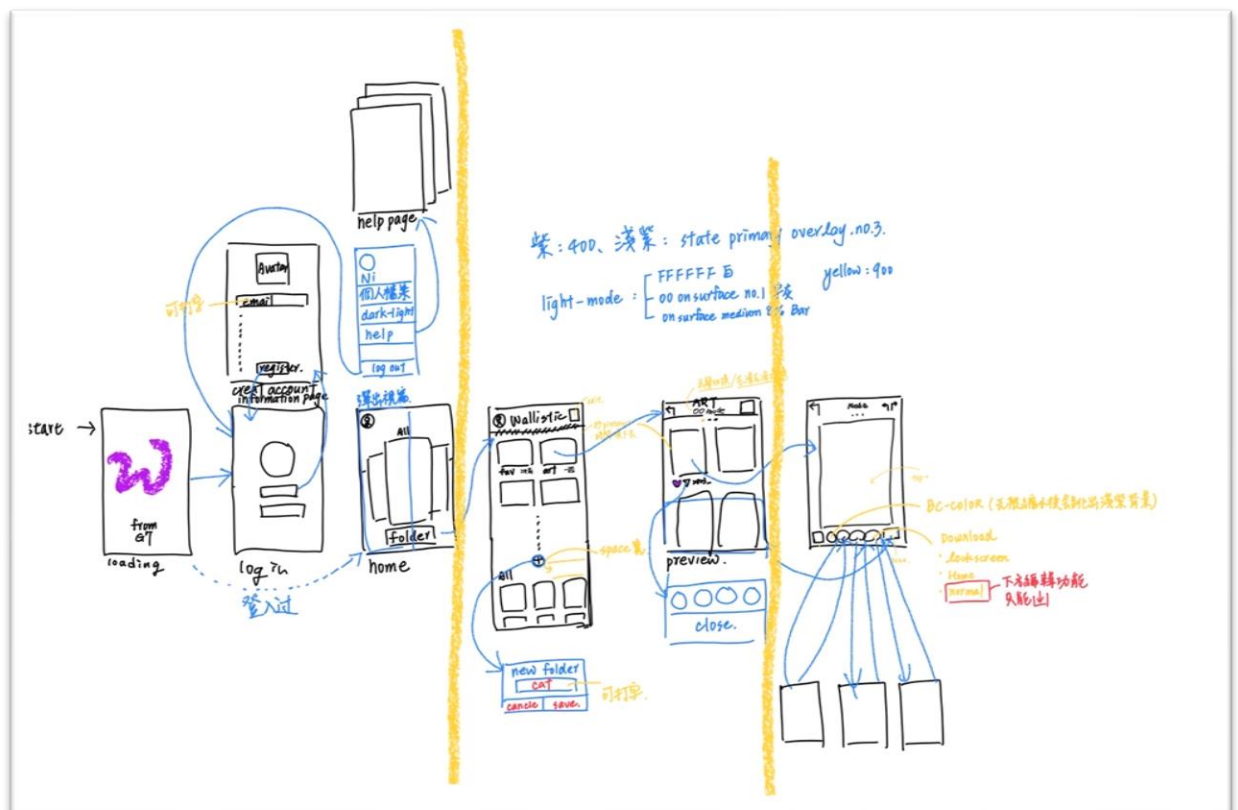 help page
Avatar
email
register.
creat account
information page
Ni
個人檔案
dark-light
help
log out
彈出視窗
start
from
G7
loading
log in
登入过
All
folder
home
紫:400、淺紫: state primary overlay.no.3.
light-mode :
FFFFFF 白
00 on surface no.1
on surface medium Bar
yellow:900
Wallistic
fav
art
All
new folder
cat
cancle
save.
可打字
可打字.
ART
preview.
close.
BC-COLOR
Download
lockscreen
Home
normal
下方編輯功能